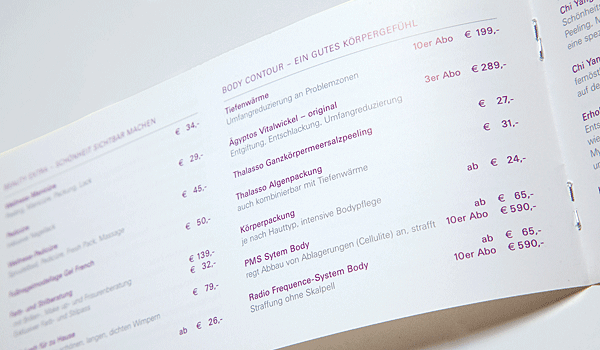 BEAUTY EXTRA – SCHÖNHEIT SICHTBAR MACHEN
€ 34,-
Wellness Maniküre
Peeling, Maniküre, Packung, Lack
€ 29,-
Pediküre
€ 45,-
Wellness Pediküre
Sprudelbad, Pediküre, Fresh Pack, Massage
€ 50,-
Fußnagelmodellage Gel French
€ 139,-
€ 32,-
Farb- und Stilberatung
mit Brillen-, Make up- und Frisurenberatung
Exklusiver Farb- und Stilpass
€ 79,-
für zu Hause
schönen, langen, dichten Wimpern
ab € 26,-
BODY CONTOUR – EIN GUTES KÖRPERGEFÜHL
Tiefenwärme 10er Abo € 199,-
Umfangreduzierung an Problemzonen
Ägyptos Vitalwickel – original 3er Abo € 289,-
Entgiftung, Entschlackung, Umfangreduzierung
Thalasso Ganzkörpermeersalzpeeling € 27,-
Thalasso Algenpackung € 31,-
auch kombinierbar mit Tiefenwärme
Körperpackung ab € 24,-
je nach Hauttyp, intensive Bodypflege
PMS Sytem Body ab € 65,-
regt Abbau von Ablagerungen (Cellulite) an, strafft 10er Abo € 590,-
Radio Frequence-System Body ab € 65,-
Straffung ohne Skalpell 10er Abo € 590,-
Chi Yang
Schönheits
Peeling, M
eine spez
Chi Yang
fernöst
auf de
Erhol
Entsp
wirku
My
und